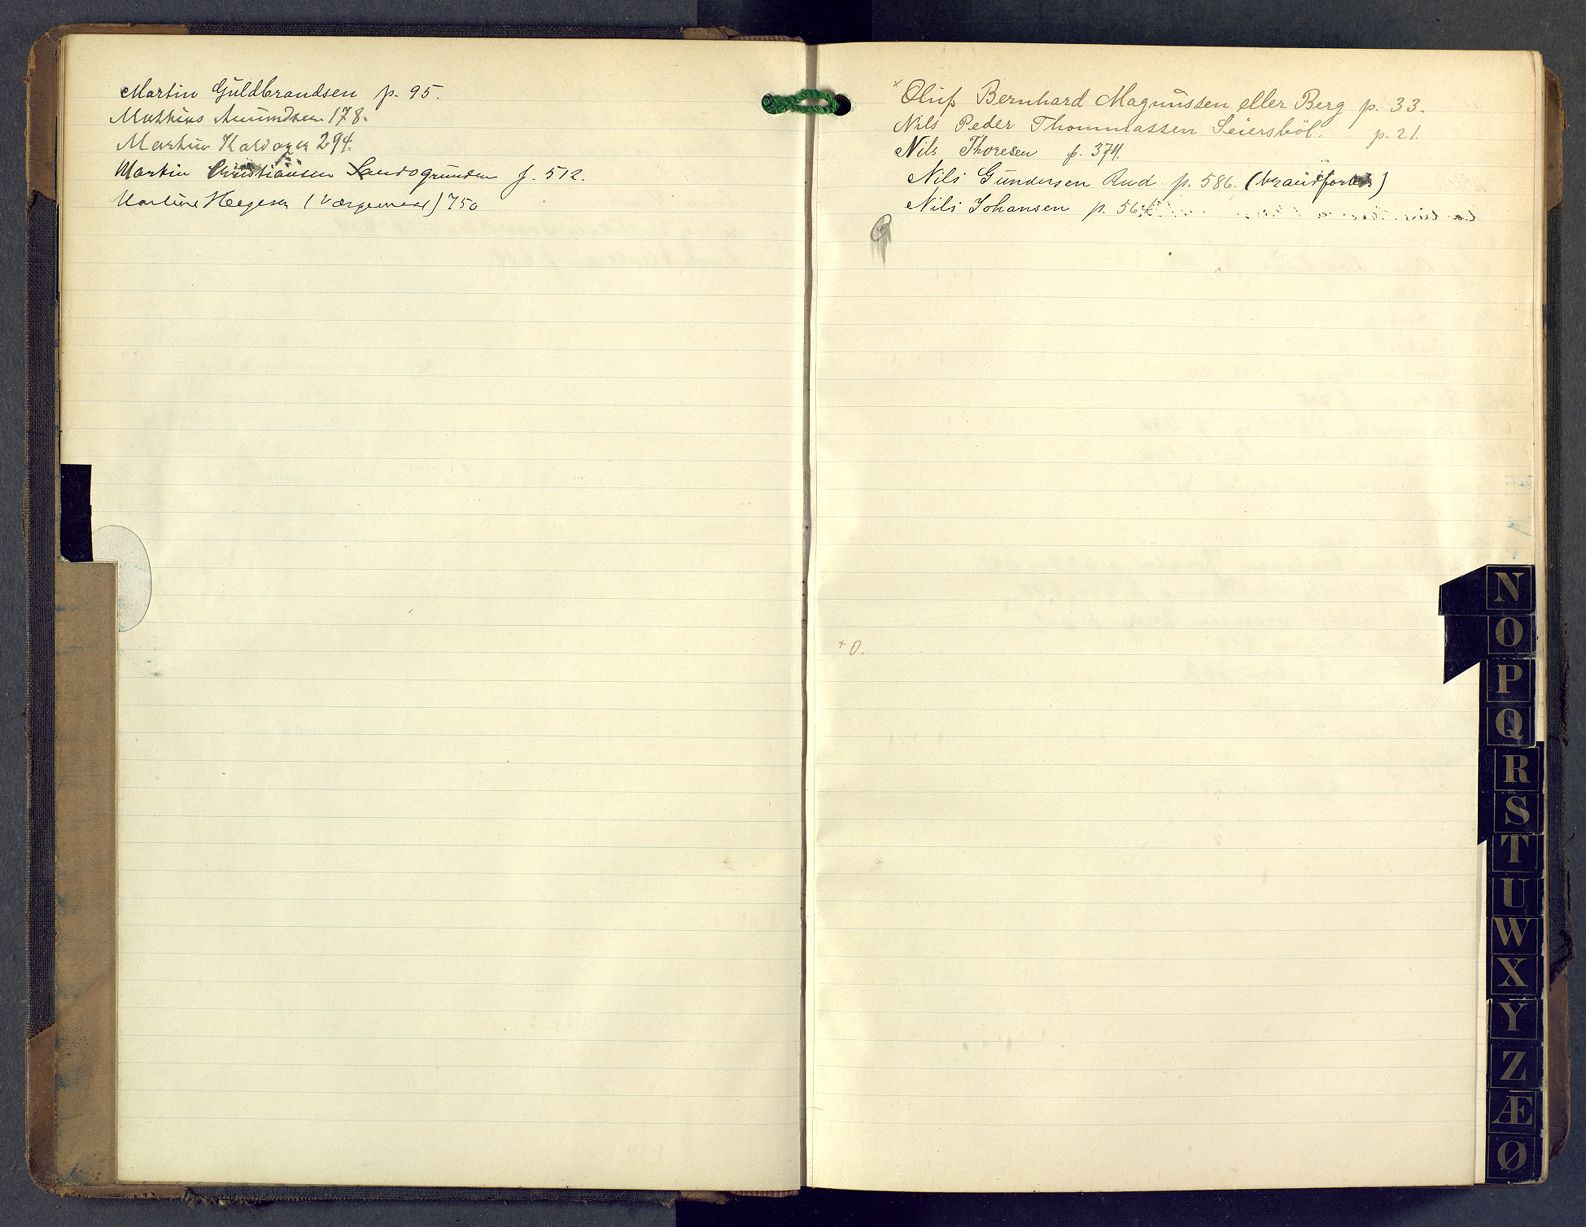 Martin Guldbrandsen p. 95.
Mathias Amundsen 178.
Martin 294.
Martin Christiansen Sandsgrunden p. 512.
Martine Hegesen (Værgemaal) 750
× Oluf Bernhard Magnussen eller Berg p. 33.
Nils Peder Thommassen Seiersböl. p. 21.
Nils Thoresen p. 374.
Nils Gundersen Rud p. 586.
Nils Johansen p. 564
+ O.
N
O
P
Q
R
S
T
U
W
X
Y
Z
Æ
Ø